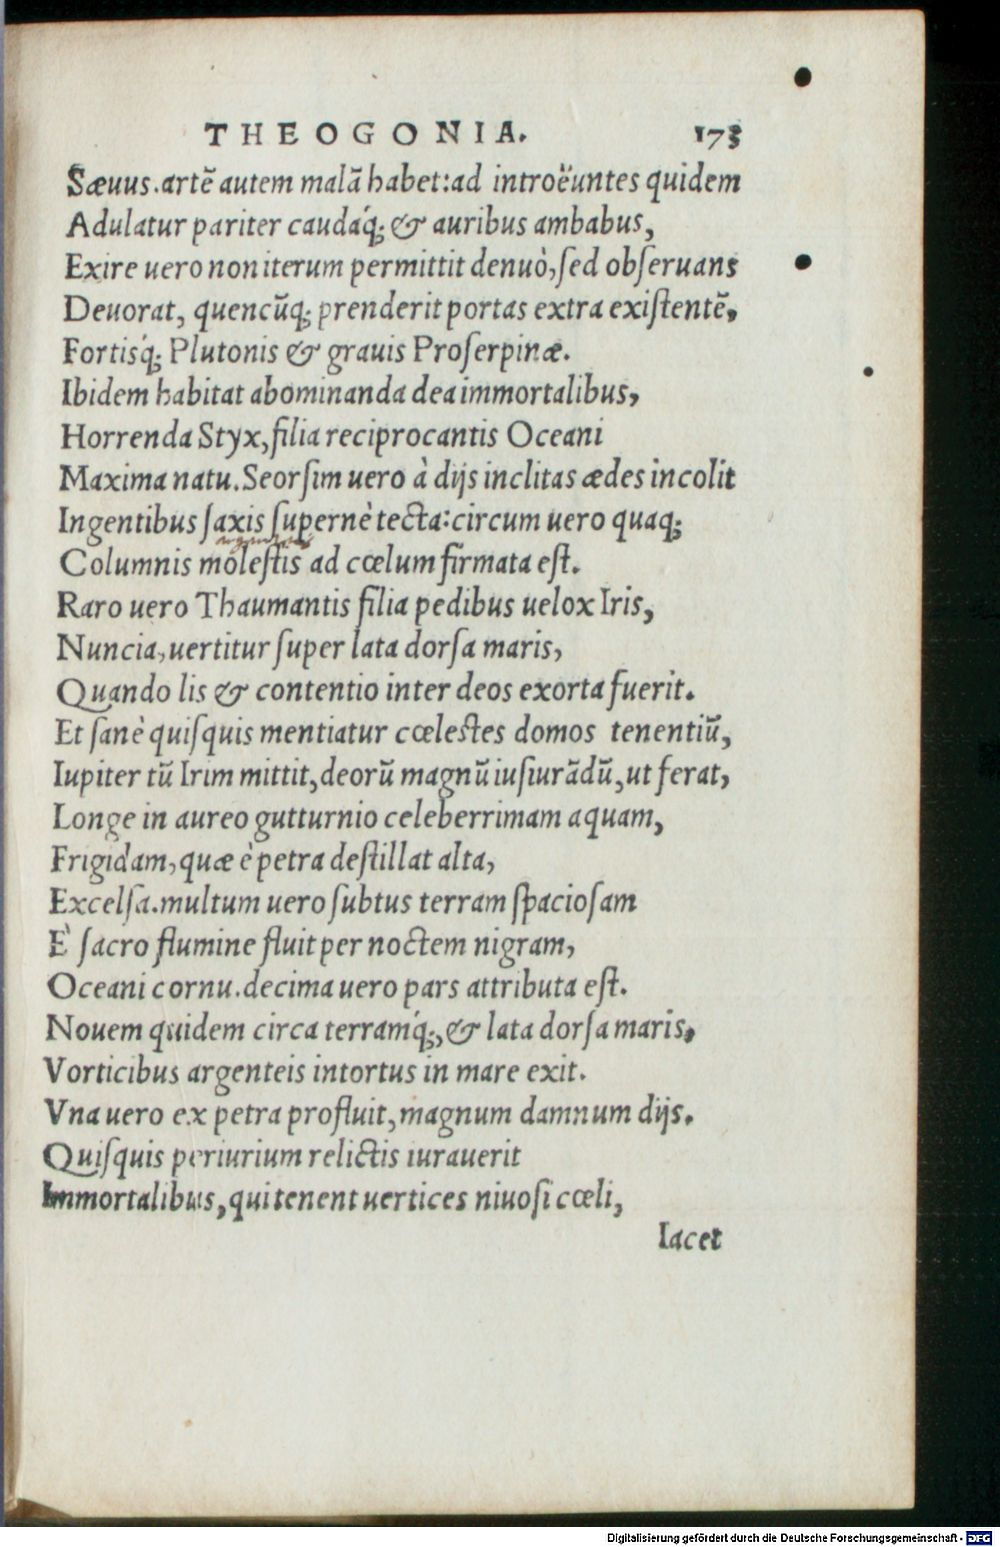 THEOGONIA. 173
Sæuus.artē autem malā habet:ad introëuntes quidem
Adulatur pariter caudáq; & auribus ambabus,
Exire uero non iterum permittit denuò, sed obseruans
Deuorat, quencūq; prenderit portas extra existentē,
Fortisq́; Plutonis & grauis Proserpinæ.
Ibidem habitat abominanda dea immortalibus,
Horrenda Styx, filia reciprocantis Oceani
Maxima natu. Seorsim uero à dijs inclitas ædes incolit
Ingentibus saxis supernè tecta: circum uero quaq;
Columnis molestis ad cœlum firmata est.
Raro uero Thaumantis filia pedibus uelox Iris,
Nuncia, uertitur super lata dorsa maris,
Quando lis & contentio inter deos exorta fuerit.
Et sanè quisquis mentiatur cœlestes domos tenentiū,
Iupiter tū Irim mittit, deorū magnū iusiurādū, ut ferat,
Longe in aureo gutturnio celeberrimam aquam,
Frigidam, quæ è petra destillat alta,
Excelsa. multum uero subtus terram spaciosam
È sacro flumine fluit per noctem nigram,
Oceani cornu. decima uero pars attributa est.
Nouem quidem circa terramq́;, & lata dorsa maris,
Vorticibus argenteis intortus in mare exit.
Vna uero ex petra profluit, magnum damnum dijs.
Quisquis periurium relictis iurauerit
Immortalibus, qui tenent uertices niuosi cœli,
Iacet
Digitalisierung gefördert durch die Deutsche Forschungsgemeinschaft - DFG